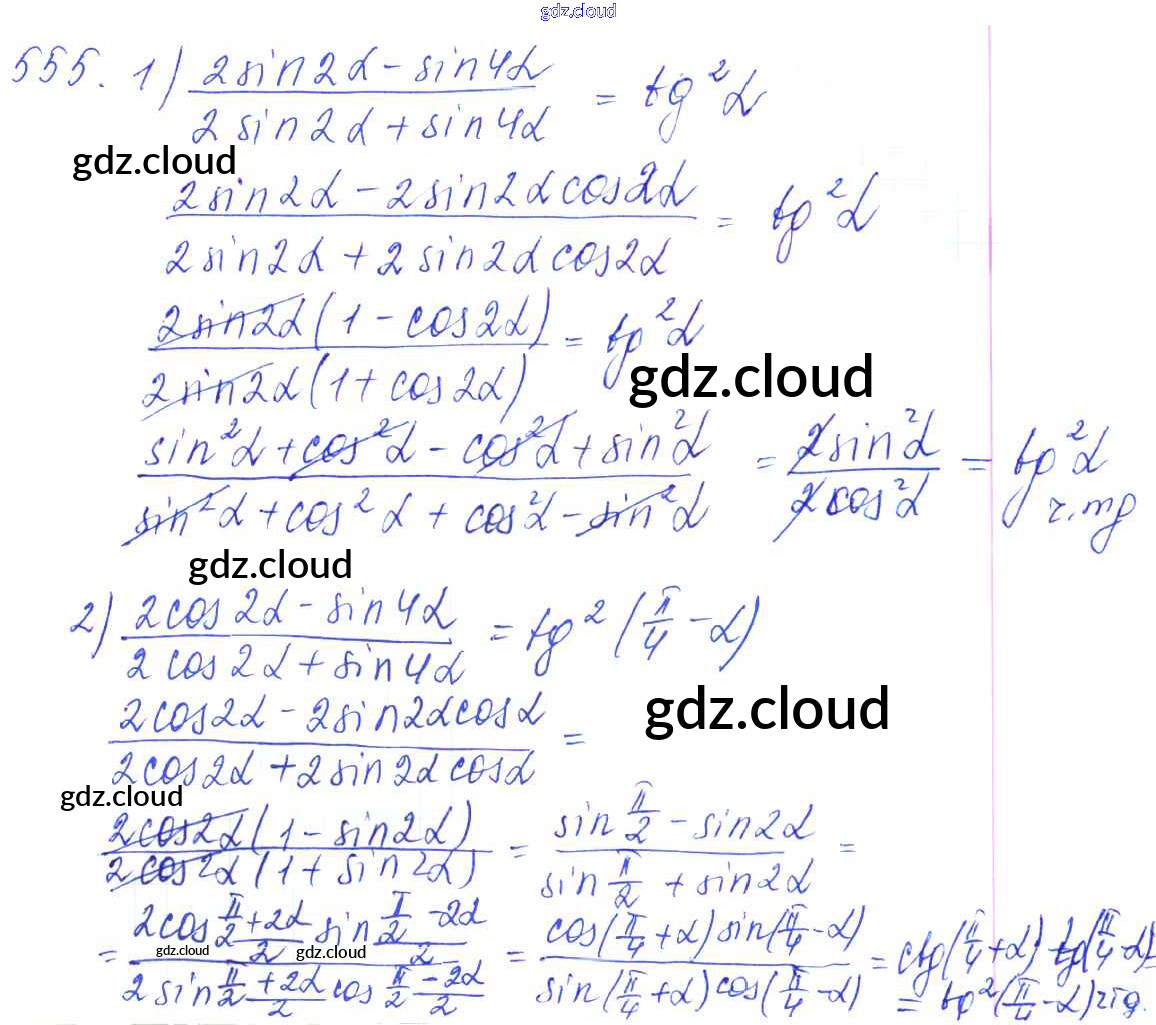 gdz.cloud
555. 1) (2sin2α - sin4α)/(2sin2α + sin4α) = tg²α
gdz.cloud
(2sin2α - 2sin2αcos2α)/(2sin2α + 2sin2αcos2α) = tg²α
(2sin2α(1 - cos2α))/(2sin2α(1 + cos2α)) = tg²α
gdz.cloud
(sin²α + cos²α - cos²α + sin²α)/(sin²α + cos²α + cos²α - sin²α) = (2sin²α)/(2cos²α) = tg²α
gdz.cloud
2) (2cos2α - sin4α)/(2cos2α + sin4α) = tg²(π/4 - α)
(2cos2α - 2sin2αcosα)/(2cos2α + 2sin2αcosα) =
gdz.cloud
gdz.cloud
(2cos2α(1 - sin2α))/(2cos2α(1 + sin2α)) = (sin π/2 - sin2α)/(sin π/2 + sin2α) =
= (2cos (π/2 + 2α)/2 sin (π/2 - 2α)/2)/(2sin (π/2 + 2α)/2 cos (π/2 - 2α)/2) = (cos(π/4 + α) sin(π/4 - α))/(sin(π/4 + α) cos(π/4 - α)) = ctg(π/4 + α) tg(π/4 - α) =
gdz.cloud gdz.cloud
= tg²(π/4 - α)